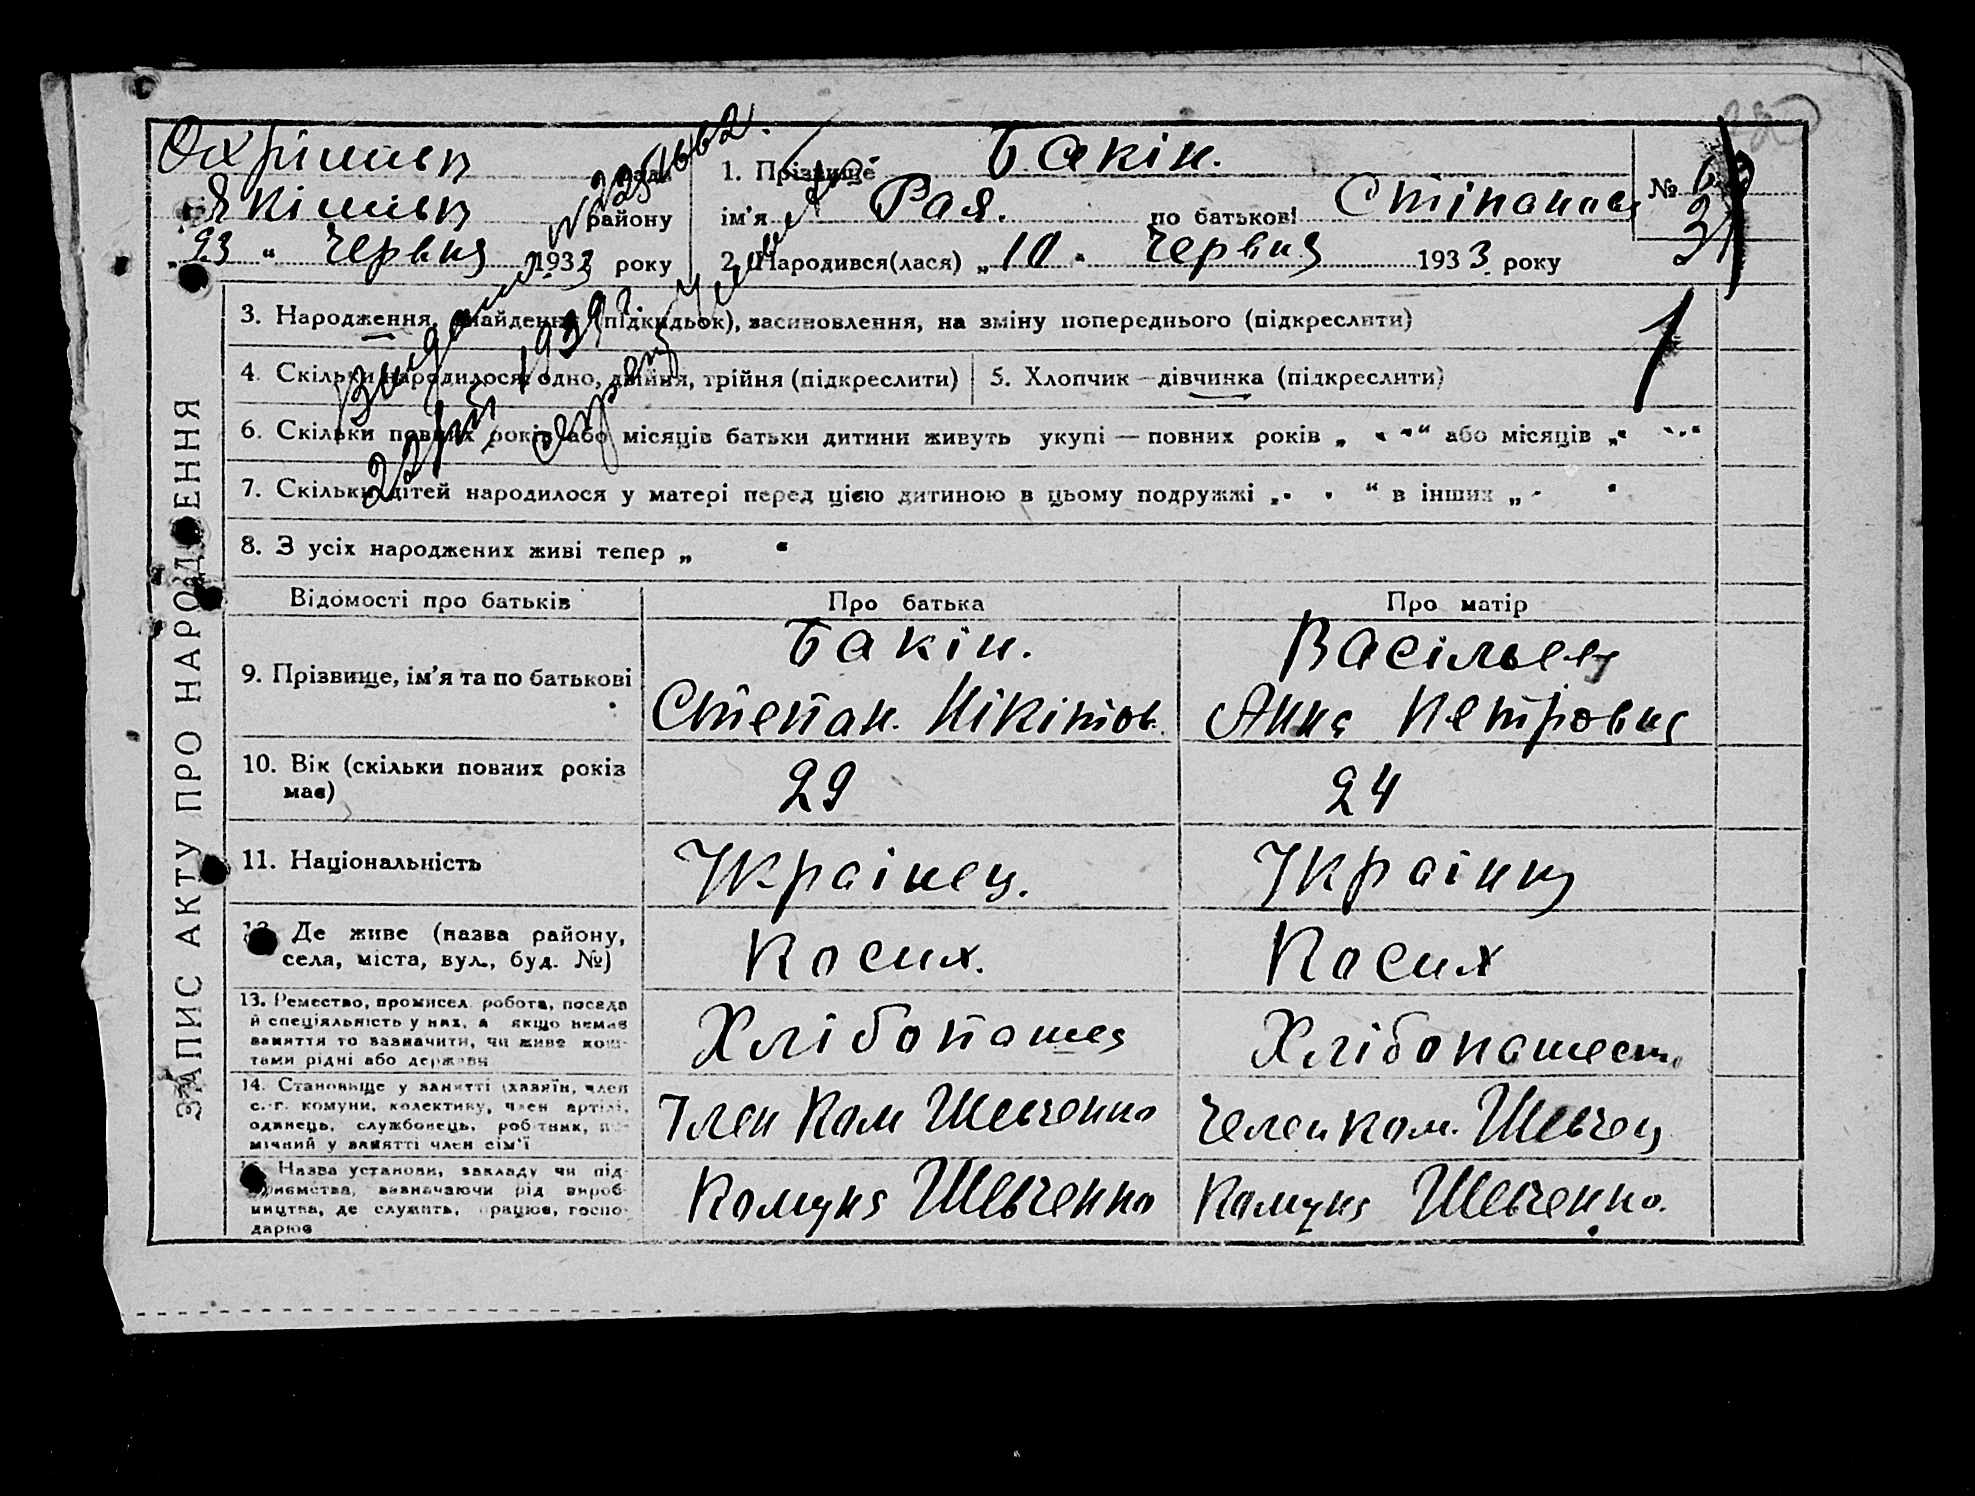 Охрімівц ради
Якімівц району
„23“ Червня 1933 року
1. Прізвище Бакін.
ім'я Рая. по батькові Стіпанов
2. Народився(лася) „10“ Червня 1933 року
№
31
3. Народження, знайдення (підкидьок), засиновлення, на зміну попереднього (підкреслити)
1
4. Скільки народилося: одно, двійня, трійня (підкреслити)
5. Хлопчик — дівчинка (підкреслити)
6. Скільки повних років або місяців батьки дитини живуть укупі — повних років „ “ або місяців „ “
7. Скільки дітей народилося у матері перед цією дитиною в цьому подружжі „ “ в інших „ “
8. З усіх народжених живі тепер „ “
ЗАПИС АКТУ ПРО НАРОДЖЕННЯ
Відомості про батьків
Про батька
Про матір
9. Прізвище, ім'я та по батькові
Бакін.
Степан. Нікітов.
Васільев
Анна Петровна
10. Вік (скільки повних років має)
29
24
11. Національність
Украінец.
Украінка
12. Де живе (назва району,
села, міста, вул., буд. №)
Косих.
Косих
13. Ремество, промисел, робота, посада
й спеціяльність у них, а якщо немає
заняття то зазначити, чи живе кош-
тами рідні або держави
Хлібопашец
Хлібопашест.
14. Становище у занятті (хазяїн, член
с.-г. комуни, колективу, член артілі,
одинець, службовець, робітник, по-
мічний у занятті член сім'ї
Член Ком Шевченко
Челен ком. Шевчец
15. Назва установи, закладу чи під-
приємства, зазначаючи рід вироб-
ництва, де служить, працює, госпо-
дарює
Комуна Шевченко
Комуна Шевченко.